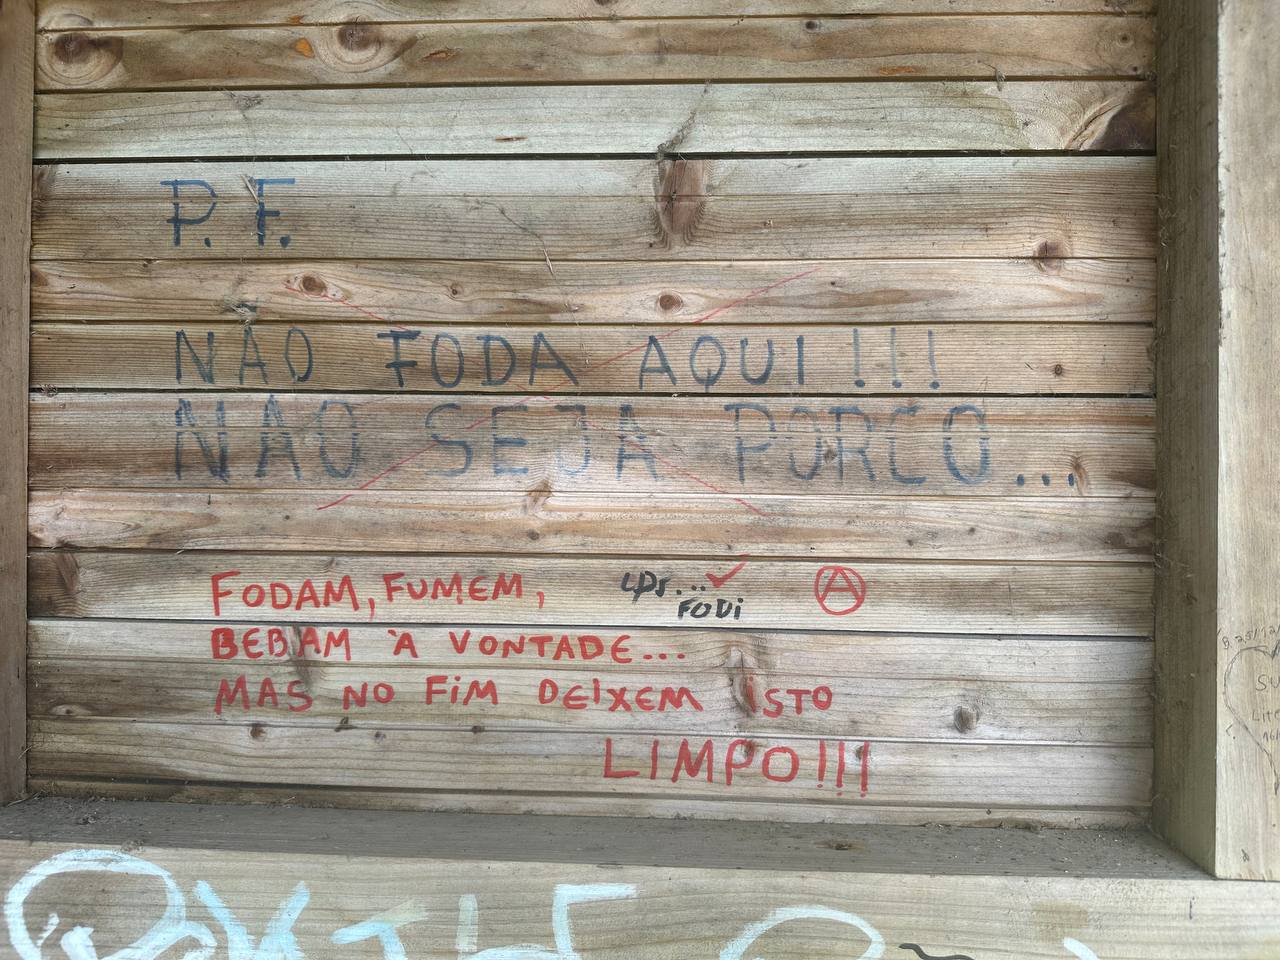 P. F.
NÃO FODA AQUI!!!
NÃO SEJA PORCO...
FODAM, FUMEM,
FODi
BEBAM À VONTADE...
MAS NO FiM DEiXEM iSTO
LIMPO!!!